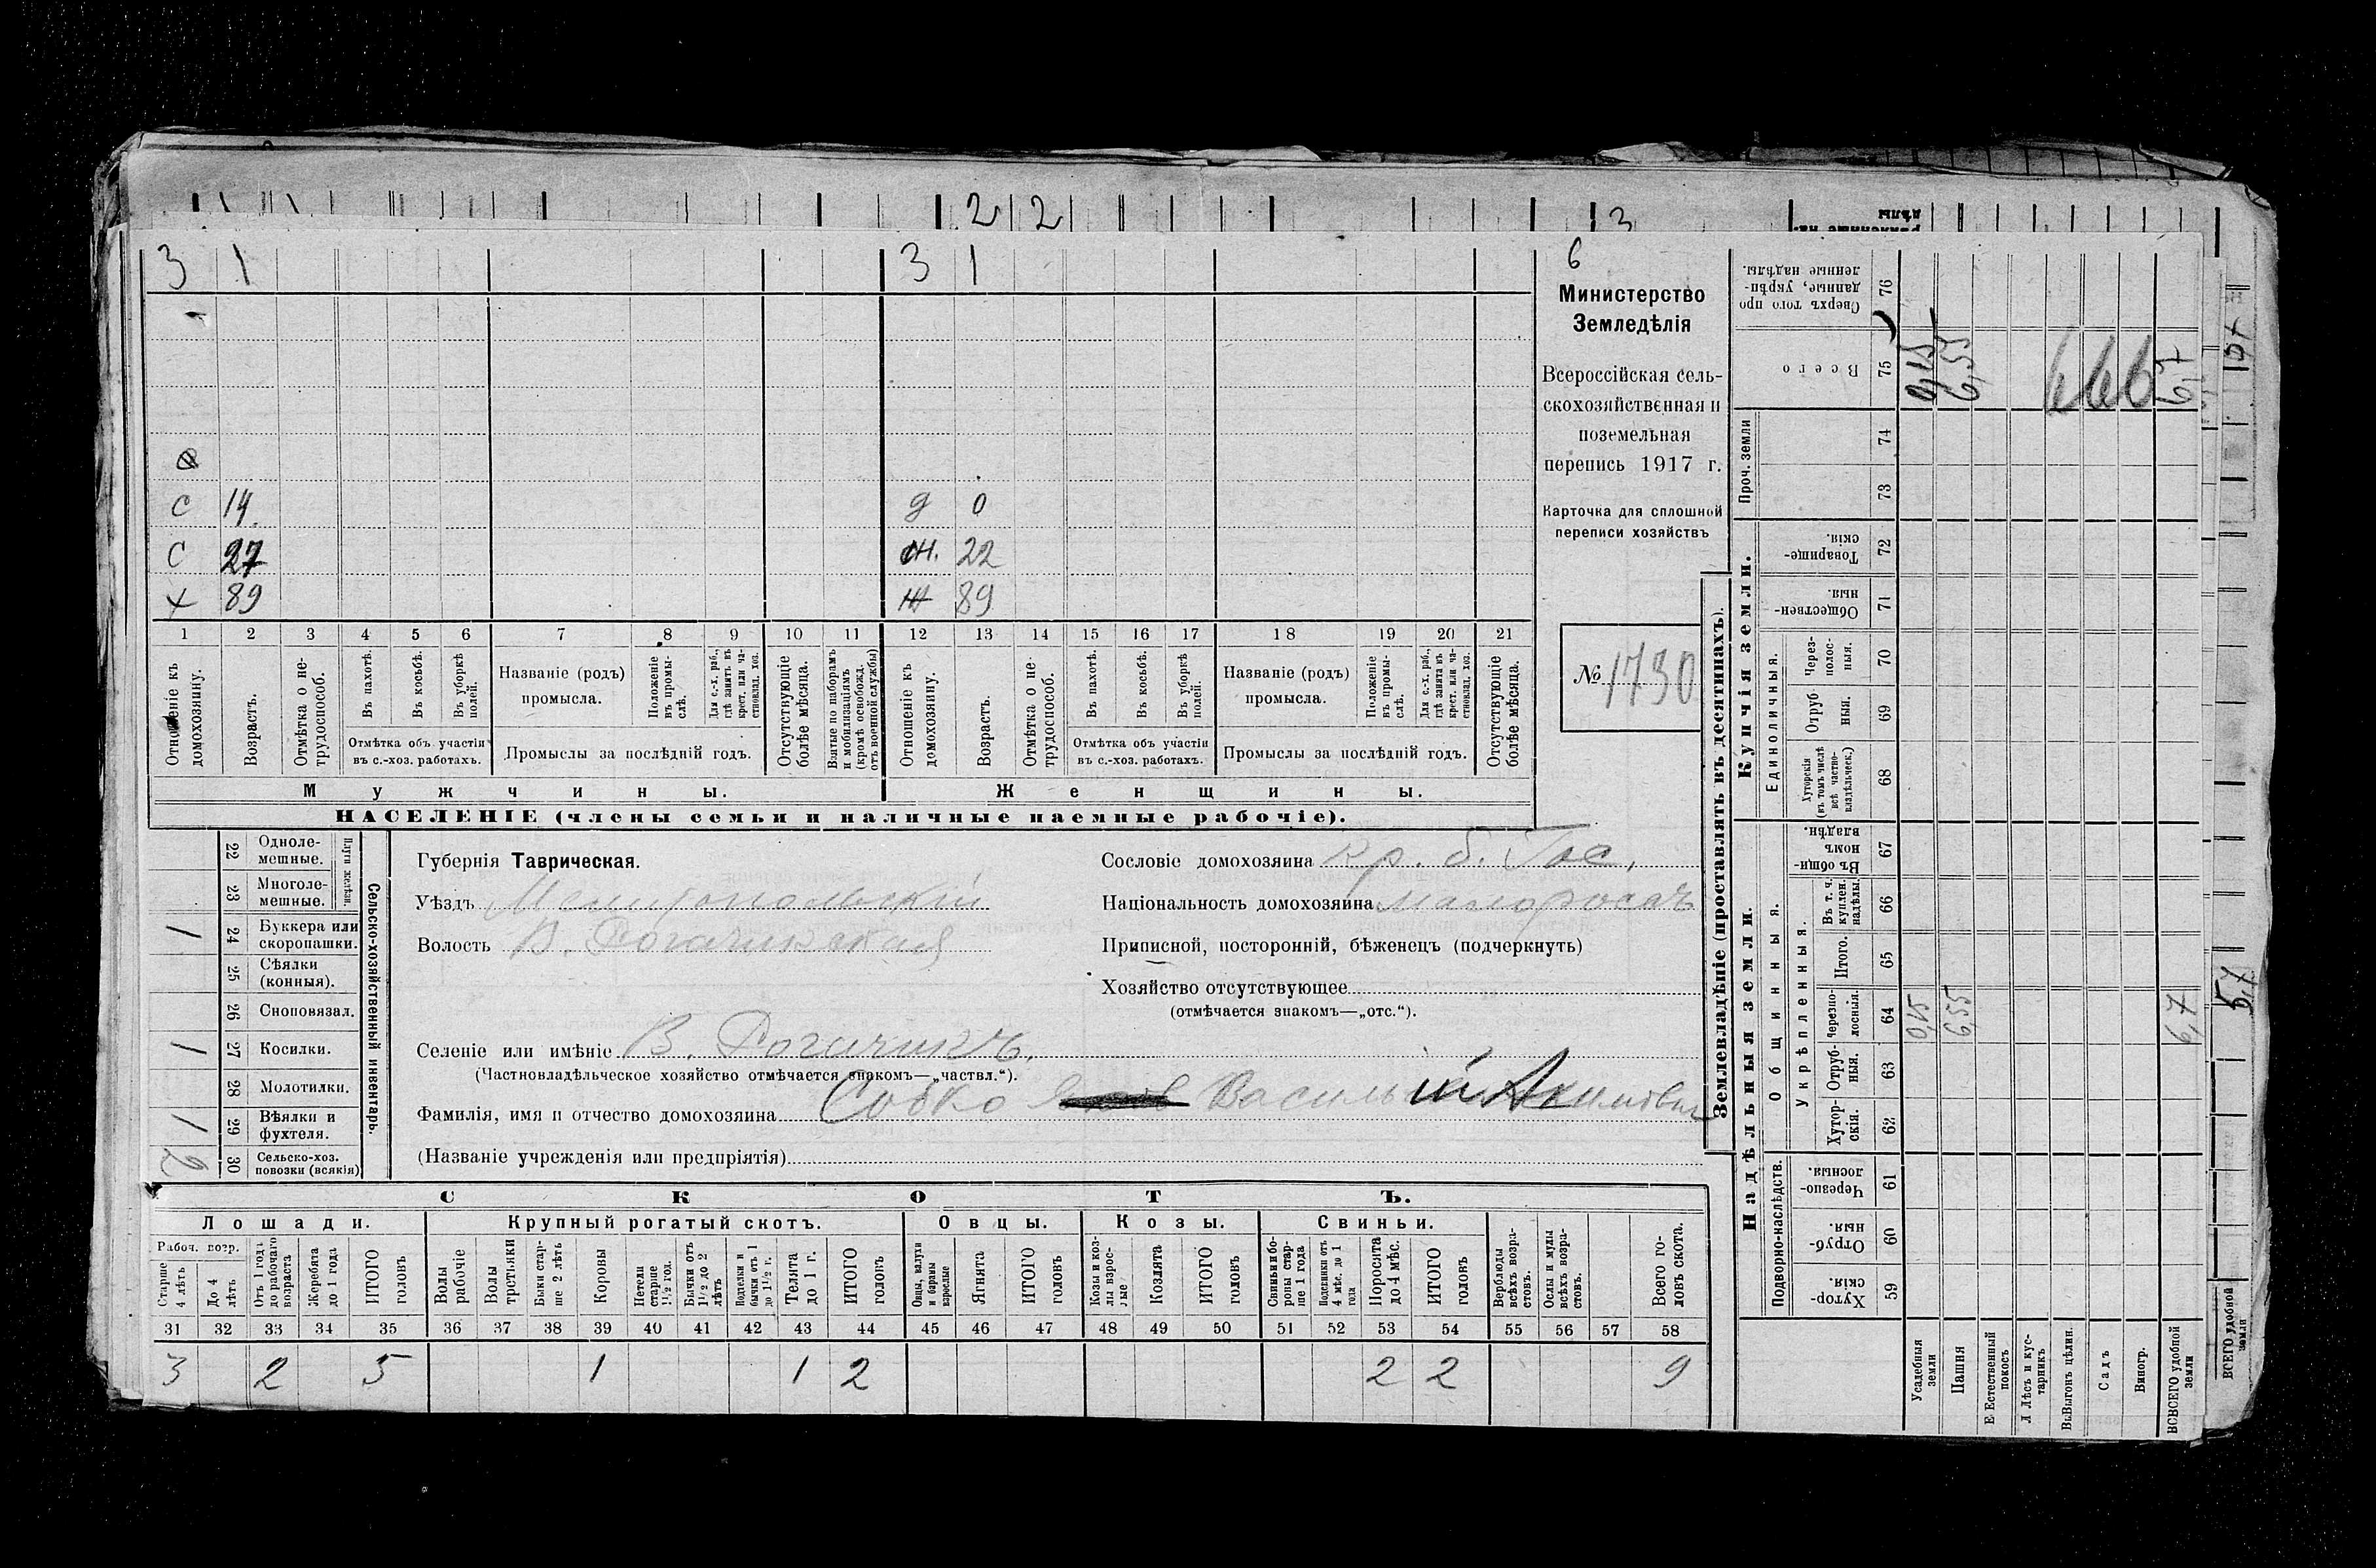 2 2 3
3 1 3 1 6
Министерство
Земледѣлія
Всероссійская сель-
скохозяйственная и
поземельная
перепись 1917 г.
Карточка для сплошной
переписи хозяйствъ
№ 1730
С 14 д 0
С 27 22
х 89 ж 89
1 2 3 4 5 6 7 8 9 10 11 12 13 14 15 16 17 18 19 20 21
Отношеніе къ домохозяину.
Возрастъ.
Отмѣтка о не-трудоспособ.
Въ пахотѣ.
Въ косьбѣ.
Въ уборкѣ полей.
Отмѣтка объ участіи
въ с.-хоз. работахъ.
Названіе (родъ)
промысла.
Положеніе въ промы-слѣ.
Для с.-х. раб., гдѣ занятъ въ крест. или ча-стновлад. хоз.
Промыслы за послѣдній годъ.
Отсутствующіе болѣе мѣсяца.
Взятые по наборамъ и мобилизаціямъ (кромѣ освобожд. отъ военной службы)
Отношеніе къ домохозяину.
Возрастъ.
Отмѣтка о не-трудоспособ.
Въ пахотѣ.
Въ косьбѣ.
Въ уборкѣ полей.
Отмѣтка объ участіи
въ с.-хоз. работахъ.
Названіе (родъ)
промысла.
Положеніе въ промы-слѣ.
Для с.-х. раб., гдѣ занята въ крест. или ча-стновлад. хоз.
Промыслы за послѣдній годъ.
Отсутствующіе болѣе мѣсяца.
Мужчины. Женщины.
НАСЕЛЕНІЕ (члены семьи и наличные наемные рабочіе).
Сельско-хозяйственный инвентарь.
Плуги желѣзн.
22 Одноле-мешные.
23 Многоле-мешные.
1 24 Буккера или скоропашки.
25 Сѣялки (конныя).
26 Сноповязал.
1 27 Косилки.
28 Молотилки.
1 29 Вѣялки и фухтеля.
2 30 Сельско-хоз. повозки (всякія)
Губернія Таврическая.
Уѣздъ Мелитопольскій
Волость В. Рогачикская
Селеніе или имѣніе В. Рогачикъ.
(Частновладѣльческое хозяйство отмѣчается знакомъ—„частвл.“).
Фамилія, имя и отчество домохозяина Собко Василій Акимович
(Названіе учрежденія или предпріятія)
Сословіе домохозяина Кр. б. Гос.
Національность домохозяина малороссъ
Приписной, посторонній, бѣженецъ (подчеркнуть)
Хозяйство отсутствующее
(отмѣчается знакомъ—„отс.“).
СКОТЪ.
Лошади. Крупный рогатый скотъ. Овцы. Козы. Свиньи.
Рабоч. возр.
Старше 4 лѣтъ
До 4 лѣтъ
Отъ 1 года до рабочаго возраста
Жеребята до 1 года
ИТОГО головъ
Волы рабочіе
Волы третьяки
Быки стар-ше 2 лѣтъ
Коровы
Нетели старше 1½ год.
Бычки отъ 1½ до 2 лѣтъ
Подтелки и бычки отъ 1 до 1½ г.
Телята до 1 г.
ИТОГО головъ
Овцы, валухи и бараны взрослые
Ягнята
ИТОГО головъ
Козы и коз-лы взрос-лые
Козлята
ИТОГО головъ
Свиньи и бо-ровы стар-ше 1 года
Подсвинки отъ 4 мѣс. до 1 года
Поросята до 4 мѣс.
ИТОГО головъ
Верблюды всѣхъ возра-стовъ.
Ослы и мулы всѣхъ возра-стовъ.
Всего го-ловъ скота.
31 32 33 34 35 36 37 38 39 40 41 42 43 44 45 46 47 48 49 50 51 52 53 54 55 56 57 58
3 2 5 1 1 2 2 2 9
Землевладѣніе (проставлять въ десятинахъ).
Надѣльныя земли.
Купчія земли.
Проч. земли
Подворно-наслѣдств.
Общинныя.
Укрѣпленныя.
Единоличныя.
Хутор-скія. 59
Отруб-ныя. 60
Черезпо-лосныя. 61
Хутор-скія. 62
Отруб-ныя. 63
Черезпо-лосныя. 64 0,15 6,55 6,7
Итого. 65
Въ т. ч. куплен. надѣлы. 66
Въ общи-номъ владѣн. 67
Хуторскія (въ томъ числѣ всѣ частно-владѣльческ.) 68
Отруб-ныя. 69
Через-полос-ныя. 70
Обществен-ныя. 71
Товарище-скія. 72
73
74
Всего 75 0,15 6,55 6,7
Сверхъ того про-данные, укрѣп-ленные надѣлы. 76
Усадебныя земли
Пашня
Е Естественный покосъ
Л Лѣсъ и кус-тарникъ
ВъВыгонъ цѣлин.
Садъ
Виногр.
ВСВСЕГО удобной земли
ВСЕГО удобной земли
5,7